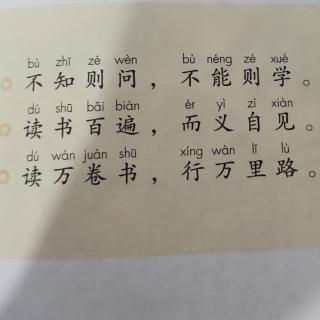 bù zhī zé wèn bù néng zé xué
不知则问，不能则学。
dú shū bǎi biàn ér yì zì xiàn
读书百遍，而义自见。
dú wàn juàn shū xíng wàn lǐ lù
读万卷书，行万里路。